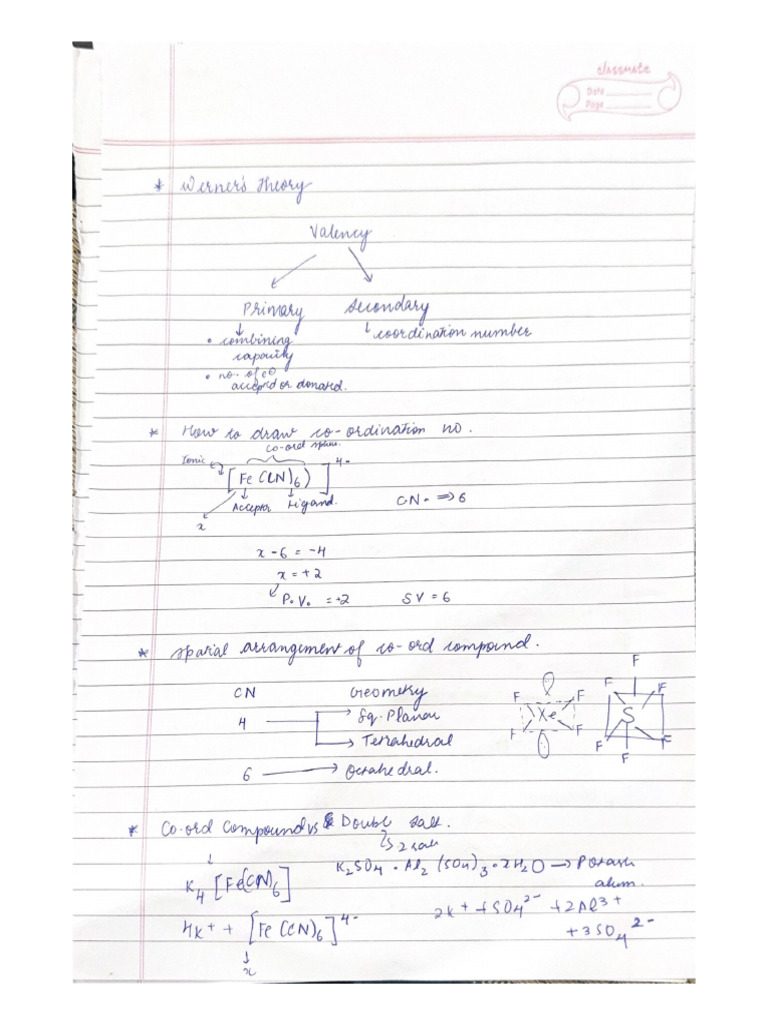 classmate
Date
Page
* Werner's Theory
Valency
Primary Secondary
• combining capacity
↳ coordination number
• no. of
accepted or donated.
* How to draw co-ordination no.
co-ord sphere
Ionic [Fe(CN)6)]4-
Acceptor Ligand. CN. ⇒ 6
x
x - 6 = -4
x = +2
P.V. = +2 SV = 6
* Spatial arrangement of co-ord compound.
CN Geometry
4 → Sq. Planar
→ Tetrahedral
6 → Octahedral.
F F Xe F F
F F F S F F F
* Co-ord Compound vs Double Salt.
↳ 2 salt
K4[Fe(CN)6] K2SO4 • Al2(SO4)3 • 2H2O → Potash alum.
4K+ + [Fe(CN)6]4- 2K+ + SO4 2- + 2Al3+
+ 3SO4 2-
x